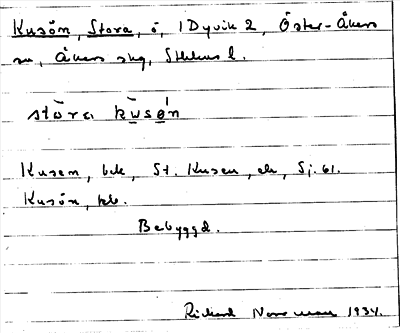 Kusön, Stora, ö, i Dyvik 2, Öster-Åkers
sn, Åkers skg, Sthlms l.
stōra kūsø̄n
Kusen, bek, St. Kusen, ek, Sj. 61.
Kusön, kb.
Bebyggd.
Rickard 1934.